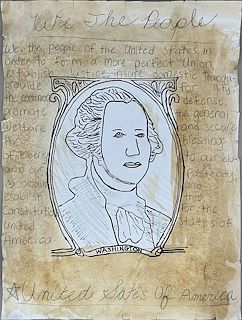 We The People
We the people of the United States, in
order to form a more perfect Union,
establish Justice, insure domestic Tranqui-
provide for lity,
the common defense,
promote the general
Welfare and secure
the Blessings
of to ourselv-
and our Posterity,
establish
Constitution for the
United States of
America
WASHINGTON
United Sates Of America